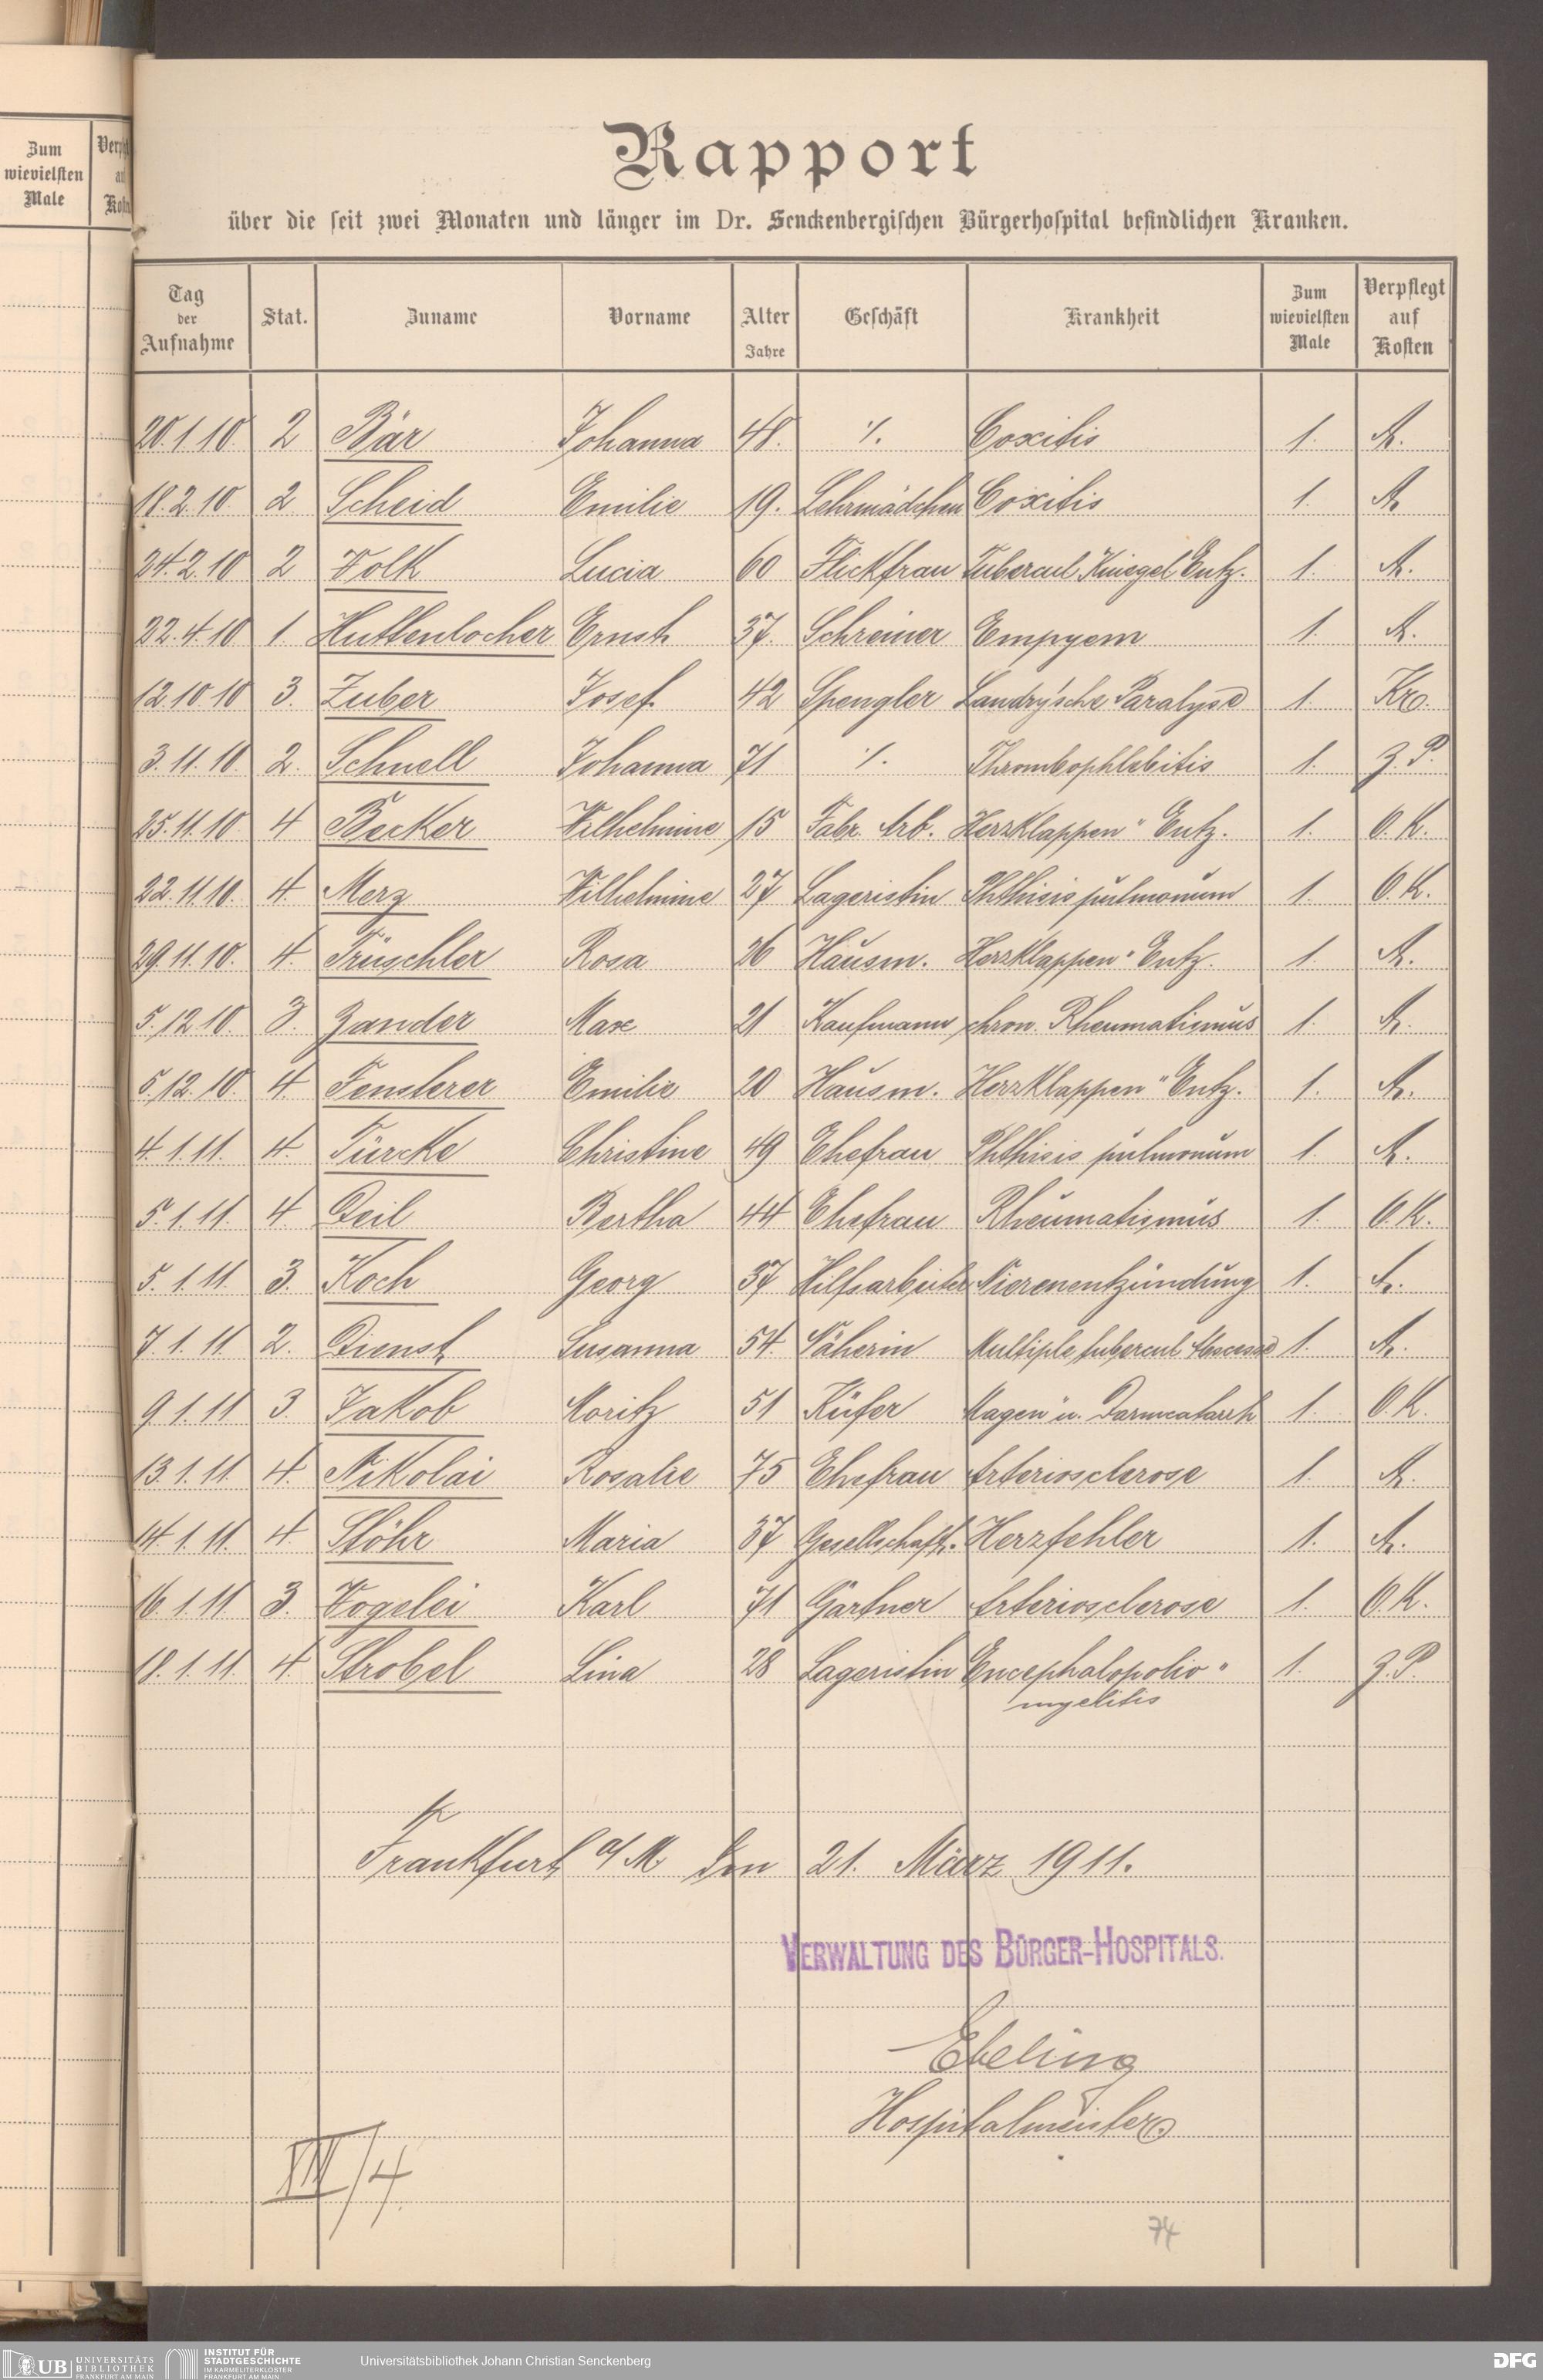 Zum
wievielsten
Male
Rapport
über die seit zwei Monaten und länger im Dr. Senckenbergischen Bürgerhospital befindlichen Kranken.
Tag der Aufnahme Stat. Zuname Vorname Alter Jahre Geschäft Krankheit Zum wievielsten Male Verpflegt auf Kosten
20.1.10. 2 Bär Johanna 48. ./. Coxitis 1. A.
18.2.10. 2 Scheid Emilie 19. Lehrmädchen Coxitis 1. A.
24.2.10 2 Volk Lucia 60 Flickfrau Tubercul. Kniegel Entz. 1. A.
22.4.10 1. Huttenlocher Ernst 37. Schreiner Empyem 1. A.
12.10 10 3. Zuber Josef 42 Spengler Landry'sche Paralyse 1.
3.11.10. 2. Schnell Johanna 71 ./. Thrombophlebitis 1. Z.P.
25.11.10. 4 Becker Wilhelmine 15 Fabr. Arb. Herzklappen" Entz. 1. O.K.
22.11.10. 4. Merz Wilhelmine 27 Lageristin Phthisis pulmonum 1. O.K.
29.11.10. 4. Rosa 26 Hausm. Herzklappen" Entz. 1. A.
5.12.10. 3. Zander Max 21 Kaufmann chron. Rheumatismus 1. A.
5.12.10. 4. Fensterer Emilie 20 Hausm. Herzklappen" Entz. 1. A.
4.1.11. 4. Türcke Christine 49 Ehefrau Phthisis pulmonum 1. A.
5.1.11. 4 Deil Bertha 44 Ehefrau Rheumatismus 1. O.K.
5.1.11. 3. Koch Georg 37 Hilfsarbeiter Nierenentzündung 1. A.
7.1.11 2. Dienst Susanna 54. Näherin Multiple tubercul Abscesse 1. A.
9.1.11 3. Jakob Moritz 51 Küfer Magen" u. Darmcatarrh 1. O.K.
13.1.11. 4. Nikolai Rosalie 75 Ehefrau Arteriosclerose 1. A.
14.1.11. 4 Stöhr Maria 37 Gesellschaft. Herzfehler 1. A.
16.1.11. 3. Vogelei Karl 71 Gärtner Arteriosclerose 1. O.K.
18.1.11. 4. Strobel Lina 28 Lageristin Encephalopolio" 1. Z.P.
myelitis
Frankfurt a/M. den 21. März 1911.
VERWALTUNG DES BÜRGER-HOSPITALS.
Ebeling
Hospitalmeister
XIII/4.
74
UB UNIVERSITÄTS
BIBLIOTHEK
FRANKFURT AM MAIN
INSTITUT FÜR
STADTGESCHICHTE
IM KARMELITERKLOSTER
FRANKFURT AM MAIN
Universitätsbibliothek Johann Christian Senckenberg
DFG